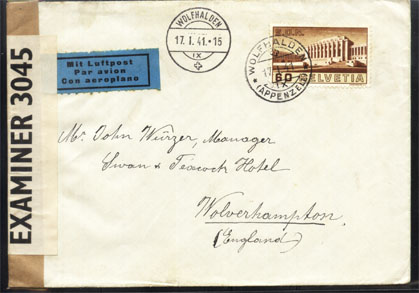 EXAMINER 3045
Mit Luftpost
Par avion
Con aeroplano
WOLFHALDEN
17. I. 41.-1
IX
S.D.N.
60 HELVETIA
WOLFHALDEN
IX
(APPENZELL)
Mr. John Würzer, Manager
Swan & Peacock Hotel
Wolverhampton
(England)